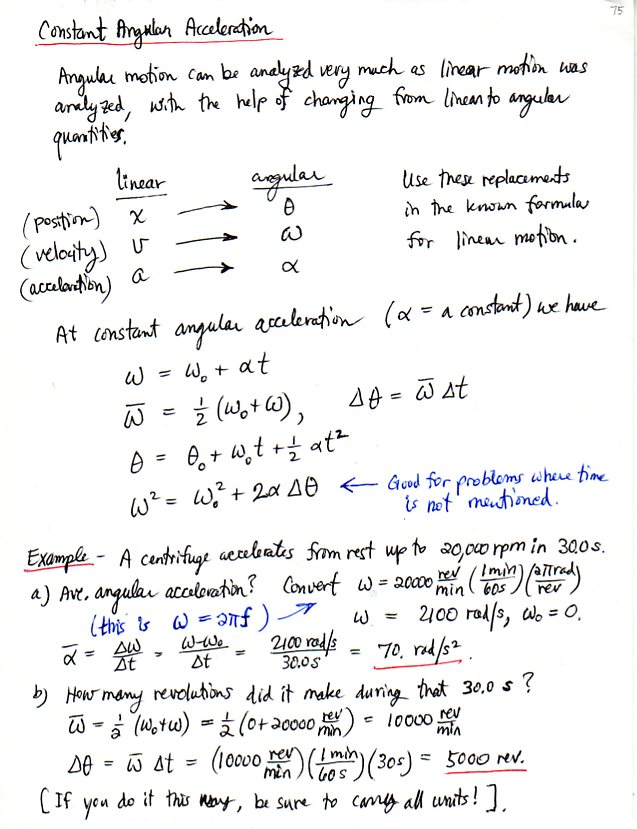 75
Constant Angular Acceleration
Angular motion can be analyzed very much as linear motion was
analyzed, with the help of changing from linear to angular
quantities.
linear angular
(position) x → θ
(velocity) v → ω
(acceleration) a → α
Use these replacements
in the known formula
for linear motion.
At constant angular acceleration (α = a constant) we have
ω = ω₀ + αt
ω̅ = ½ (ω₀+ω), Δθ = ω̅ Δt
θ = θ₀ + ω₀t + ½ αt²
ω² = ω₀² + 2α Δθ ← Good for problems where time
is not mentioned.
Example - A centrifuge accelerates from rest up to 20,000 rpm in 30.0 s.
a) Ave. angular acceleration? Convert ω = 20000 rev/min (1 min/60 s)(2π rad/rev)
(this is ω = 2πf) ω = 2100 rad/s, ω₀ = 0.
α̅ = Δω/Δt = ω-ω₀/Δt = 2100 rad/s/30.0 s = 70. rad/s².
b) How many revolutions did it make during that 30.0 s?
ω̅ = ½ (ω₀+ω) = ½ (0+20000 rev/min) = 10000 rev/min
Δθ = ω̅ Δt = (10000 rev/min)(1 min/60 s)(30s) = 5000 rev.
[If you do it this way, be sure to carry all units!].